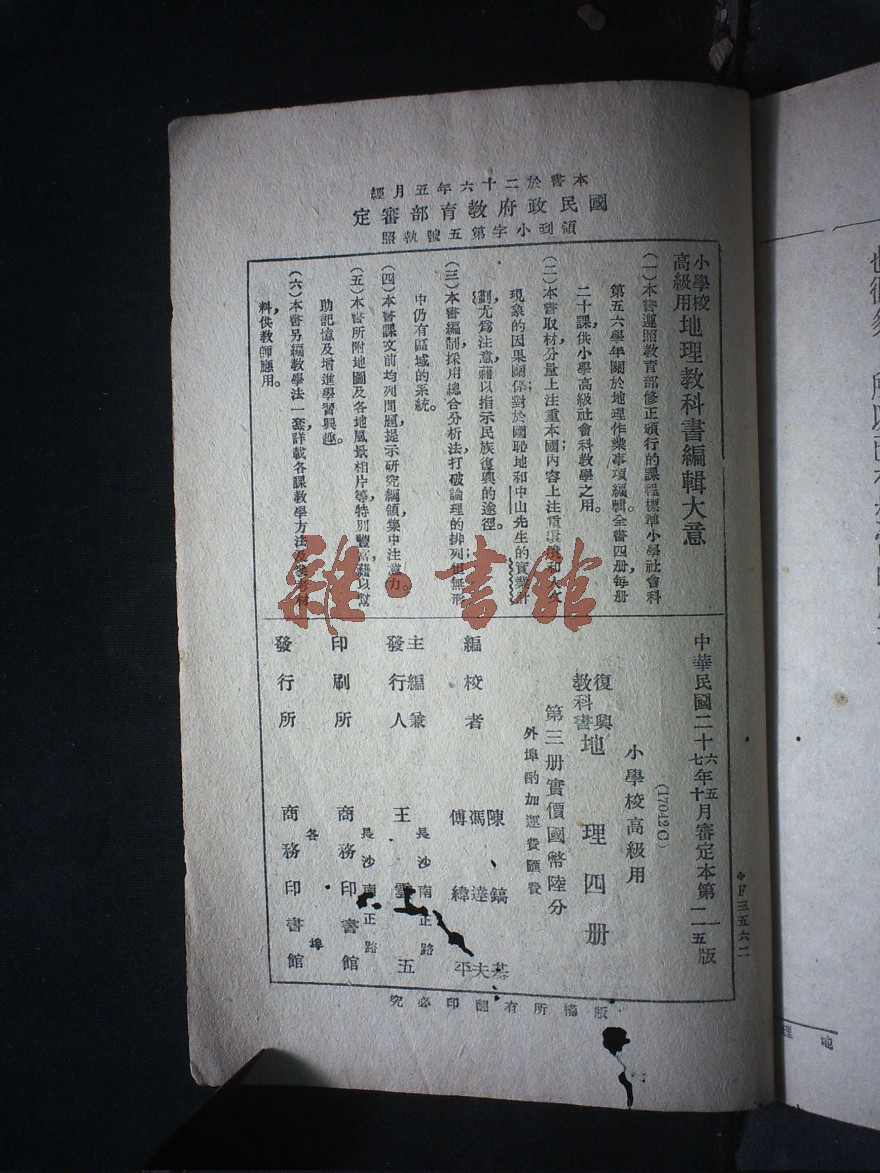 本書於二十六年五月經
國民政府教育部審定
領到小字第五號執照
小學校高級用地理教科書編輯大意
(一)本書遵照教育部修正頒行的課程標準小學社會科
第五六學年關於地理作業事項編輯全書四册每册
二十課,供小學高級社會科教學之用。
(二)本書取材分量上注重本國;內容上注重環境和人文
現象的因果關係;對於國恥地和中山先生的實業計
劃,尤爲注意,藉以指示民族復興的途徑。
(三)本書編制採用總合分析法,打破論理的排列;但無形
中仍有區域的系統。
(四)本書課文前均列問題,提示研究綱領集中注意力。
(五)本書所附地圖及各地風景相片等特別豐富,藉以幫
助記憶及增進學習興趣。
(六)本書另編教學法一套,詳載各課教學方法及參考材
料,供教師應用。
中華民國二十六年五月審定本第一版
二十七年十月審定本第二五版
(17042G)
小學校高級用
復興教科書 地理四册
第三册實價國幣陸分
外埠酌加運費匯費
編校者 陳鎬基 馮達夫 傅緯平
主編兼發行人 王雲五
長沙南正路
印刷所 商務印書館
長沙南正路
發行所 商務印書館
各埠
版權所有翻印必究
❖F三五六二
雜·書館
地理